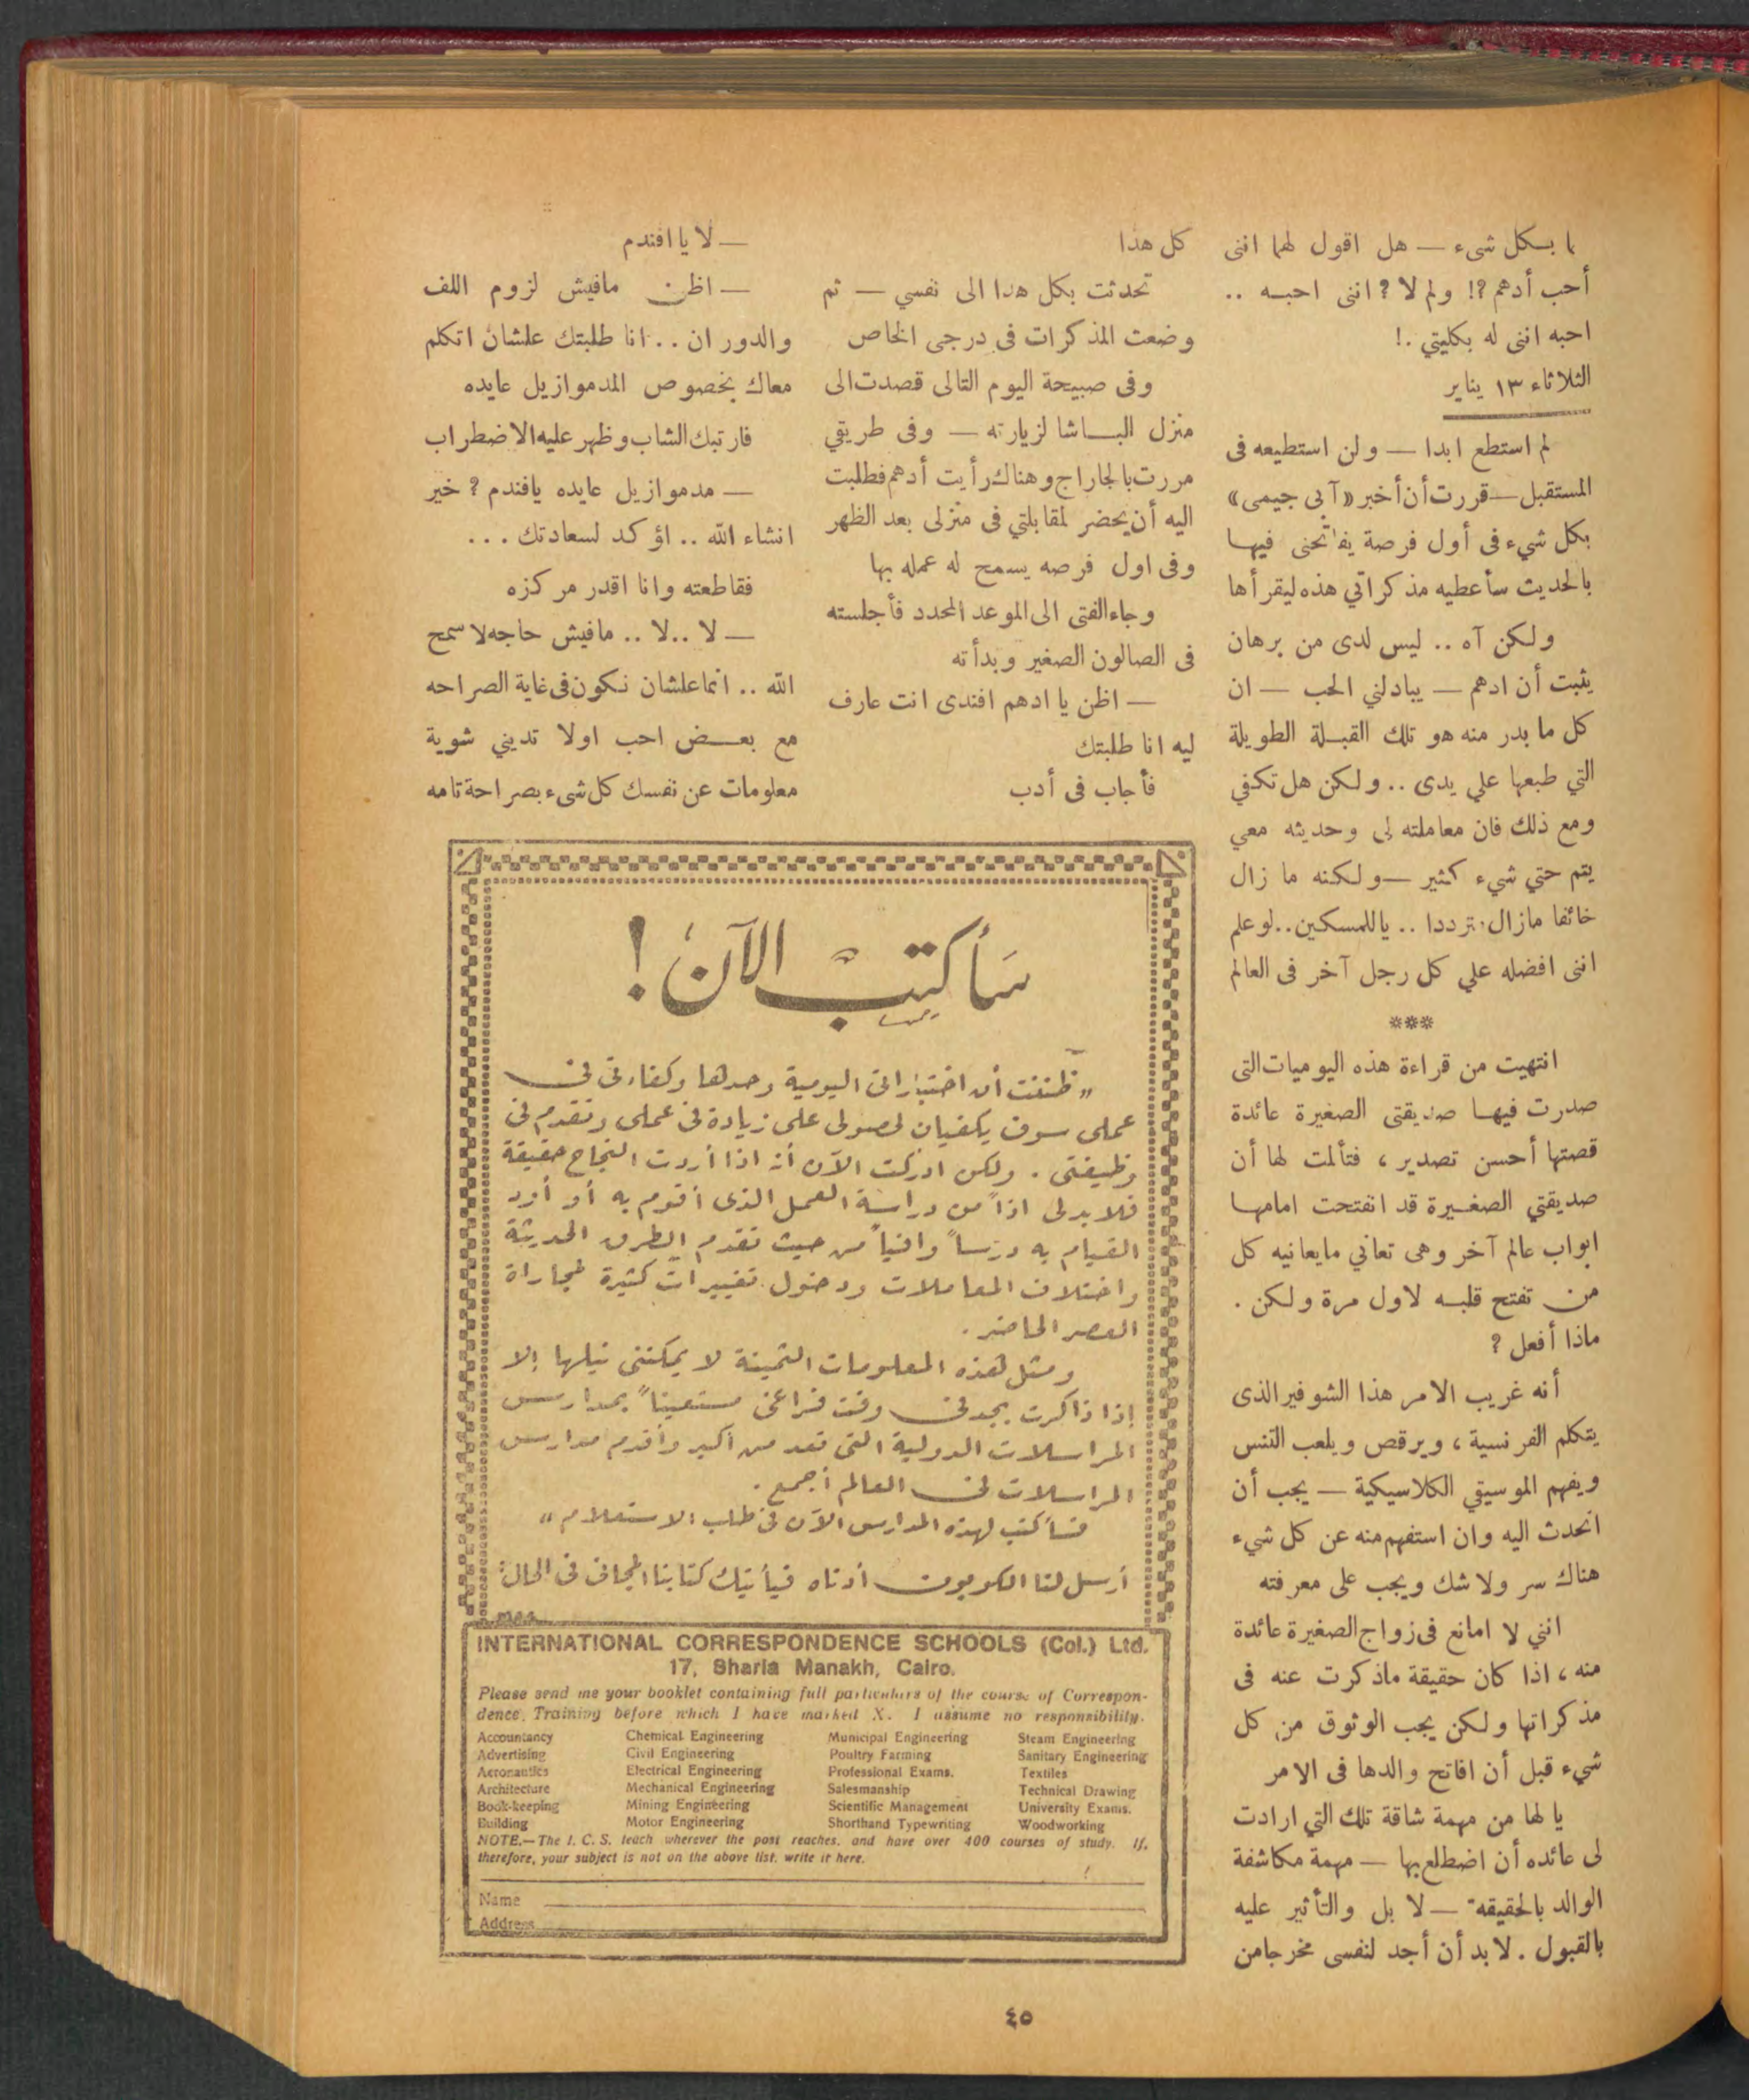 ا بكل شىء — هل اقول لهما اننى
أحب أدهم ?! ولم لا ? اننى احبه ..
احبه اننى له بكليتي .!
الثلاثاء ١٣ يناير
لم استطع ابدا — ولن استطيعه فى
المستقبل — قررت أن أخبر «آبى جيمى»
بكل شيء فى أول فرصة يفاتحنى فيها
بالحديث سأعطيه مذكراتي هذه ليقرأها
ولكن آه .. ليس لدى من برهان
يثبت أن ادهم — يبادلني الحب — ان
كل ما بدر منه هو تلك القبلة الطويلة
التي طبعها علي يدى .. ولكن هل تكفي
ومع ذلك فان معاملته لى وحديثه معي
يتم حتي شيء كثير — ولكنه ما زال
خائفا مازال مترددا .. ياللمسكين .. لو علم
اننى افضله علي كل رجل آخر فى العالم
***
انتهيت من قراءة هذه اليوميات التى
صدرت فيها صديقتى الصغيرة عائدة
قصتها أحسن تصدير ، فتألمت لها أن
صديقتي الصغيرة قد انفتحت امامها
ابواب عالم آخر وهى تعاني مايعانيه كل
من تفتح قلبه لاول مرة ولكن .
ماذا أفعل ?
أنه غريب الامر هذا الشوفير الذى
يتكلم الفرنسية ، ويرقص ويلعب التنس
ويفهم الموسيقي الكلاسيكية — يجب أن
اتحدث اليه وان استفهم منه عن كل شيء
هناك سر ولا شك ويجب على معرفته
انني لا امانع فى زواج الصغيرة عائدة
منه ، اذا كان حقيقة ماذكرت عنه فى
مذكراتها ولكن يجب الوثوق من كل
شيء قبل أن افاتح والدها فى الامر
يا لها من مهمة شاقة تلك التي ارادت
لى عائده أن اضطلع بها — مهمة مكاشفة
الوالد بالحقيقه — لا بل والتأثير عليه
بالقبول . لابد أن أجد لنفسى مخرجا من
كل هذا
تحدثت بكل هذا الى نفسي — ثم
وضعت المذكرات فى درجى الخاص
وفى صبيحة اليوم التالى قصدت الى
منزل الباشا لزيارته — وفى طريقي
مررت بالجاراج وهناك رأيت أدهم فطلبت
اليه أن يحضر لمقابلتي فى منزلى بعد الظهر
وفى اول فرصه يسمح له عمله بها
وجاء الفتى الى الموعد المحدد فأجلسته
فى الصالون الصغير وبدأته
— اظن يا ادهم افندى انت عارف
ليه انا طلبتك
فأجاب فى أدب
— لا يا افندم
— اظن مافيش لزوم اللف
والدوران .. انا طلبتك علشان اتكلم
معاك بخصوص المدموازيل عايده
فارتبك الشاب وظهر عليه الاضطراب
— مدموازيل عايده يافندم ? خير
انشاء الله .. اؤكد لسعادتك ...
فقاطعته وانا اقدر مركزه
— لا .. لا .. مافيش حاجه لا سمح
الله .. انما علشان نكون فى غاية الصراحه
مع بعض احب اولا تديني شوية
معلومات عن نفسك كل شىء بصراحة تامه
سأكتب الآن !
„ ظننت أن اختباراتى اليومية وحدها وكفاءتى فى
عملى سوف يكفيان لحصولى على زيادة فى عملى وتقدم فى
وظيفتى . ولكن ادركت الآن أنه اذا أردت النجاح حقيقة
فلا بد لى اذاً من دراسة العمل الذى أقوم به أو أود
القيام به درساً وافياً من حيث تقدم الطرق الحديثة
واختلاف المعاملات ودخول تغييرات كثيرة لمجاراة
العصر الحاضر .
ومثل هذه المعلومات الثمينة لا يمكننى نيلها إلا
إذا ذاكرت بجد فى وقت فراغى مستعيناً بمدارس
المراسلات الدولية التى تعد من أكبر وأقدم مدارس
المراسلات فى العالم أجمع .
فسأكتب لهذه المدارس الآن فى طلب الاستعلام „
أرسل لنا الكوبون أدناه فيأتيك كتابنا المجانى فى الحال :
INTERNATIONAL CORRESPONDENCE SCHOOLS (Col.) Ltd.
17, Sharia Manakh, Cairo.
Please send me your booklet containing full particulars of the course of Correspon-
dence Training before which I have marked X. I assume no responsibility.
Accountancy Chemical Engineering Municipal Engineering Steam Engineering
Advertising Civil Engineering Poultry Farming Sanitary Engineering
Aeronautics Electrical Engineering Professional Exams. Textiles
Architecture Mechanical Engineering Salesmanship Technical Drawing
Book-keeping Mining Engineering Scientific Management University Exams.
Building Motor Engineering Shorthand Typewriting Woodworking
NOTE.—The I. C. S. teach wherever the post reaches, and have over 400 courses of study. If,
therefore, your subject is not on the above list, write it here.
Name
Address
٤٥